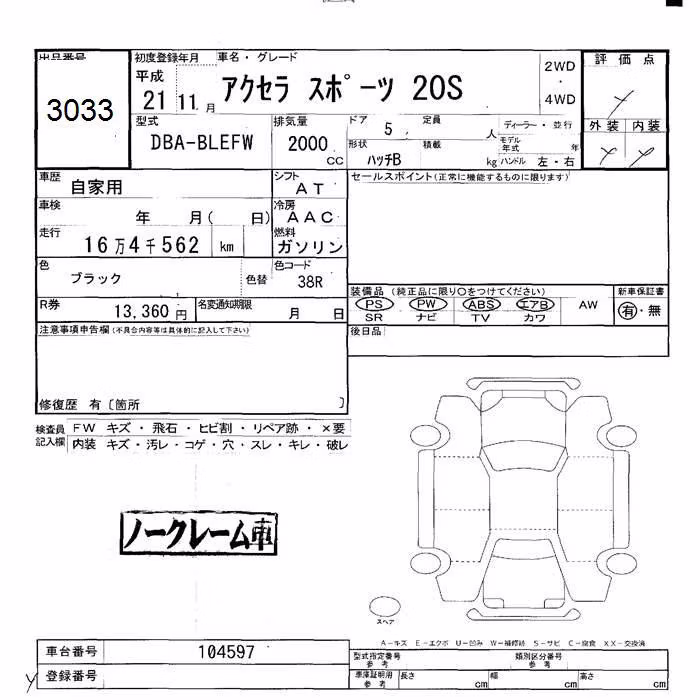 出品番号
3033
初度登録年月
平成
21 11 月
車名・グレード
アクセラ スポーツ 20S
2WD
・
4WD
評価点
外装 内装
型式
DBA-BLEFW
排気量
2000
cc
ドア
5
定員
人
形状
ハッチB
積載
kg
ディーラー・並行
モデル年式
年
ハンドル 左・右
車歴
自家用
シフト
AT
車検
年 月( 日)
冷房
AAC
走行
16万4千562 km
燃料
ガソリン
色
ブラック
色替
色コード
38R
R券
13,360円
名変通知期限
月 日
セールスポイント(正常に機能するものに限ります)
装備品(純正品に限り○をつけてください)
PS PW ABS エアB AW
SR ナビ TV カワ
新車保証書
有・無
後日品
注意事項申告欄(不具合内容等は具体的に記入して下さい)
修復歴 有〔箇所 〕
検査員記入欄
FW キズ・飛石・ヒビ割・リペア跡・×要
内装 キズ・汚レ・コゲ・穴・スレ・キレ・破レ
ノークレーム車
スペア
A-キズ E-エクボ U-凹み W-補修跡 S-サビ C-腐食 XX-交換済
車台番号
104597
登録番号
型式指定番号
参考
類別区分番号
参考
車庫証明用
参考
長さ cm
幅 cm
高さ cm